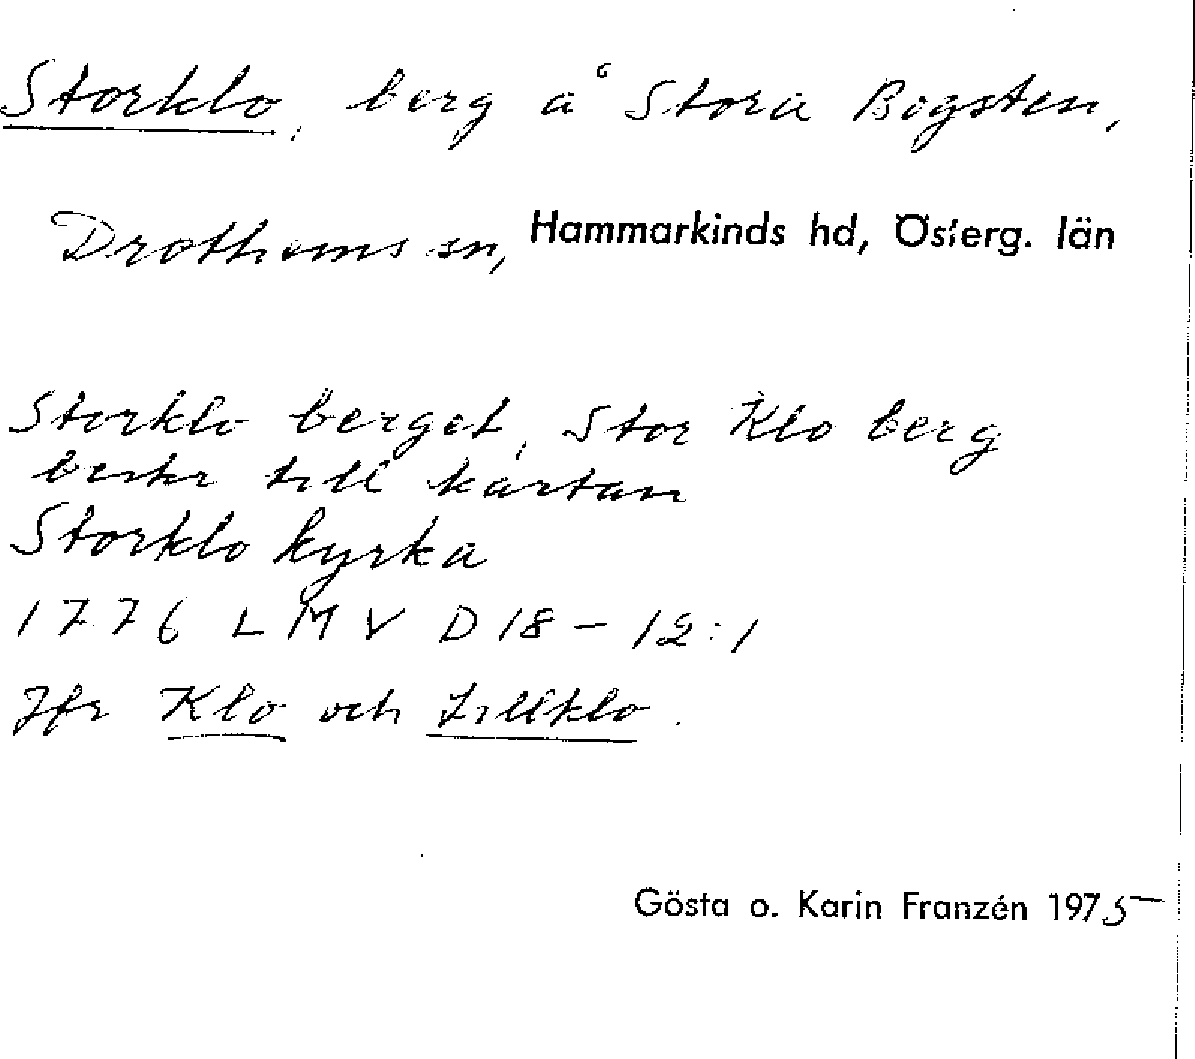 Storklo, berg å Stora Bogsten,
Drothems sn, Hammarkinds hd, Österg. län
Storklo berget, Stor Klo berg
beskr till kartan
Storklo kyrka
1776 LMV D 18 - 12:1
Jfr Klo och Lillklo.
Gösta o. Karin Franzén 1975